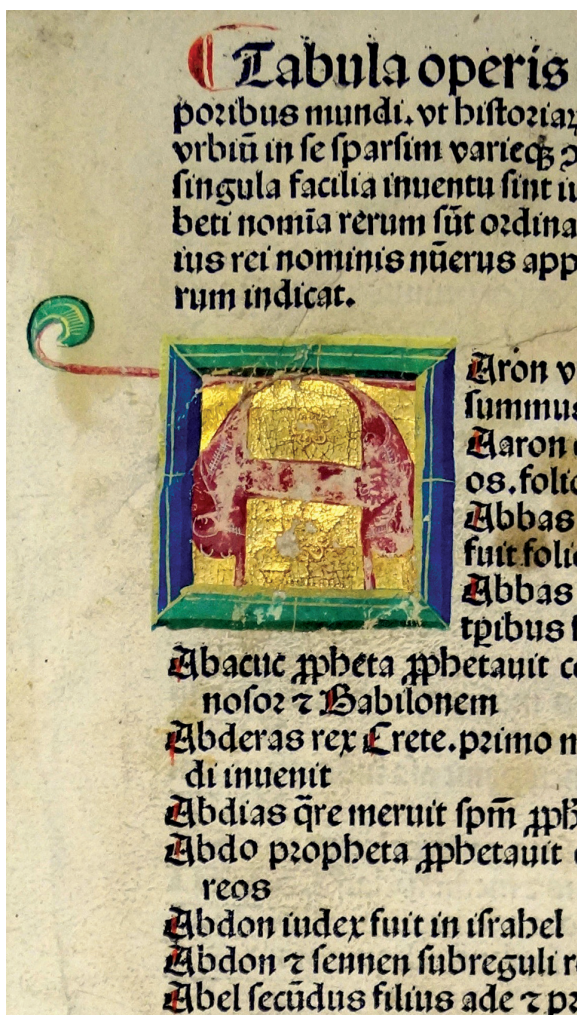 Tabula operis
poribus mundi. vt historiar
vrbiū in se sparsim varieqꝫ
singula facilia inuentu sint
beti nomīa rerum sūt ordina
ius rei nominis nūerus app
rum indicat.
A
Aron v
summus
Aaron
os. folio
Abbas
fuit folio
Abbas
tꝑibus
Abacuc ꝓpheta ꝓphetauit co
nosor ⁊ Babilonem
Abderas rex Crete. primo m
di inuenit
Abdias q̄re meruit spm̄ ꝓph
Abdo propheta ꝓphetauit
reos
Abdon iudex fuit in israhel
Abdon ⁊ sennen subreguli
Abel secūdus filius ade ⁊ pr